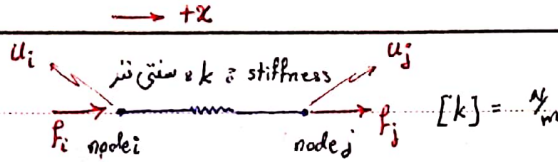 → +x
uᵢ سختی فنر k : stiffness uⱼ
fᵢ node i node j fⱼ [k] = N/m